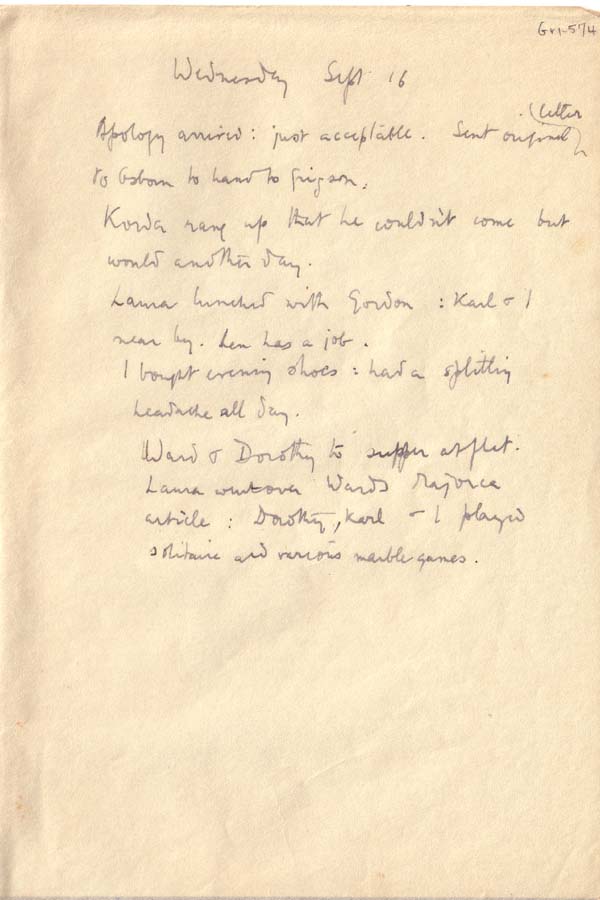 GRI-574
Wednesday Sept 16
Apology arrived: just acceptable. Sent original letter
to Osborn to hand to Grigson.
Korda rang up that he couldn't come but
would another day.
Laura lunched with Gordon: Karl & I
near by. Len has a job.
I bought evening shoes: had a splitting
headache all day.
Ward & Dorothy to supper at flat.
Laura went over Wards Majorca
article: Dorothy, Karl & I played
solitaire and various marble games.